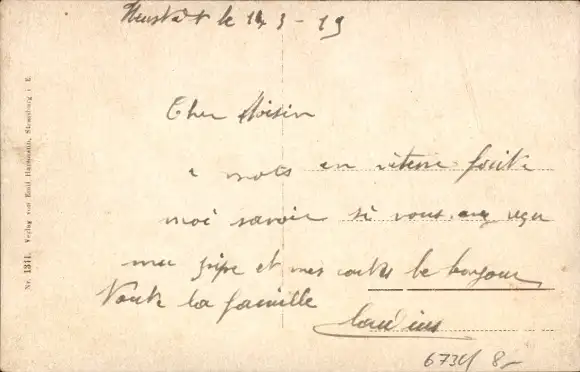 Neustadt le 14 3 - 19
Cher Voisin
2 mots en vitesse faite
moi savoir si vous avez reçu
ma pipe et mes cartes le bonjour
Toute la famille
Nr. 1311. Verlag von Emil Hartmann, Strassburg i. E.
8-